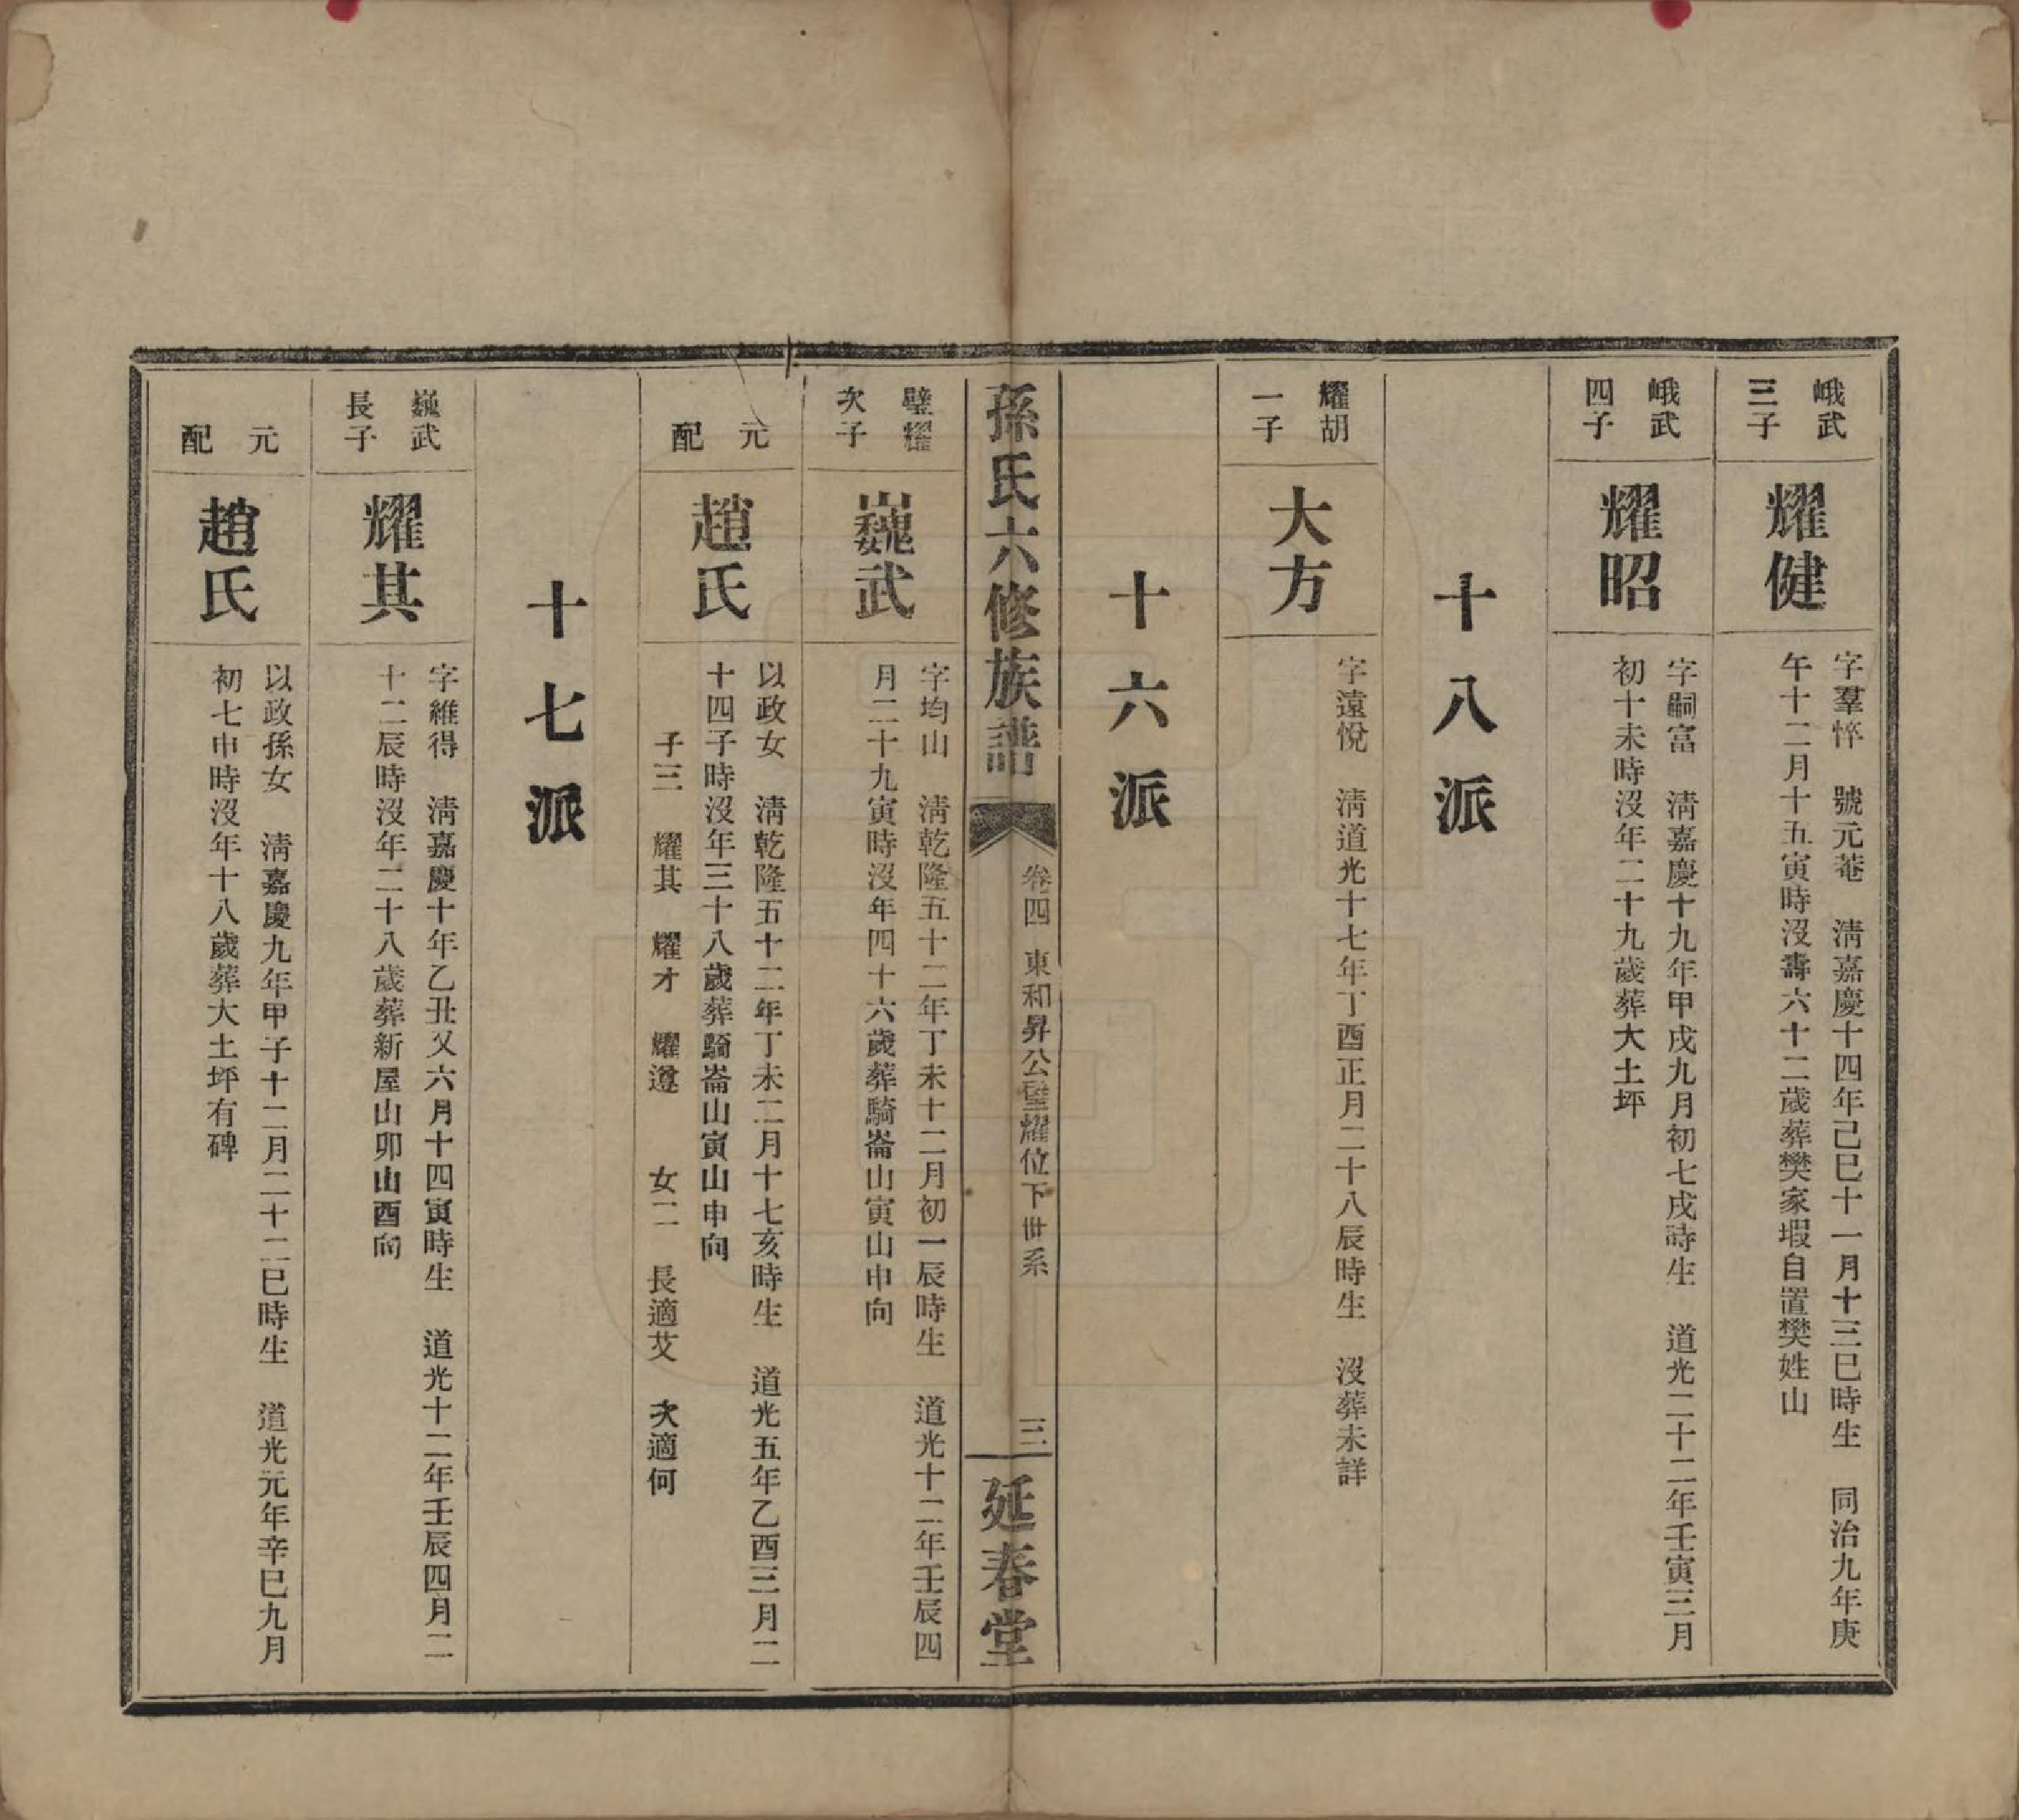 峨武
三子
耀健
字羣悴　號元菴　淸嘉慶十四年己巳十一月十三巳時生　同治九年庚
午十二月十五寅時沒壽六十二歲葬樊家塅自置樊姓山
峨武
四子
耀昭
字嗣富　淸嘉慶十九年甲戌九月初七戌時生　道光二十二年壬寅三月
初十未時沒年二十九歲葬大土坪
十八派
耀胡
一子
大方
字遠悅　淸道光十七年丁酉正月二十八辰時生　沒葬未詳
十六派
孫氏六修族譜
卷四　東和昇公璧耀位下世系
三
延春堂
璧耀
次子
巍武
字均山　淸乾隆五十二年丁未十二月初一辰時生　道光十二年壬辰四
月二十九寅時沒年四十六歲葬騎崙山寅山申向
元
配
趙氏
以政女　淸乾隆五十二年丁未二月十七亥時生　道光五年乙酉三月二
十四子時沒年三十八歲葬騎崙山寅山申向
子三　耀其　耀才　耀遵　　女二　長適艾　次適何
十七派
巍武
長子
耀其
字維得　淸嘉慶十年乙丑又六月十四寅時生　道光十二年壬辰四月二
十二辰時沒年二十八歲葬新屋山卯山酉向
元
配
趙氏
以政孫女　淸嘉慶九年甲子十二月二十二巳時生　道光元年辛巳九月
初七申時沒年十八歲葬大土坪有碑